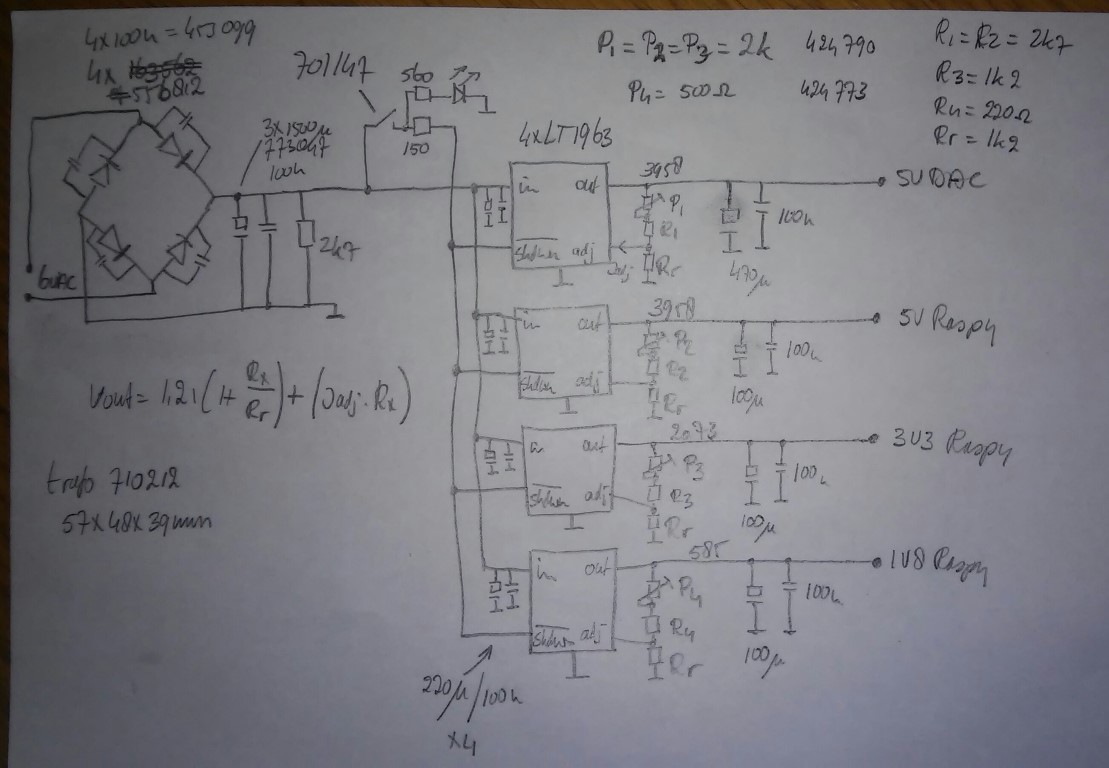 4x100n = 453099
4x 163562
= 556812
701147
560
150
3x1500µ
773047
100n
2k7
6VAC
P1 = P2 = P3 = 2k 424790
P4 = 500Ω 424773
R1 = R2 = 2k7
R3 = 1k2
R4 = 220Ω
Rr = 1k2
4xLT1963
in out
Shdwn adj
Jadj
3958
P1
R1
Rr
470µ
100n
5V DAC
in out
Shdwn adj
3958
P2
R2
Rr
100µ
100n
5V Raspy
in out
Shdwn adj
2073
P3
R3
Rr
100µ
100n
3V3 Raspy
in out
Shdwn adj
585
P4
R4
Rr
100µ
100n
1V8 Raspy
Vout = 1,21 (1+ Rx/Rr) + (Jadj · Rx)
trafo 710212
57x48x39mm
220µ/100n
x4